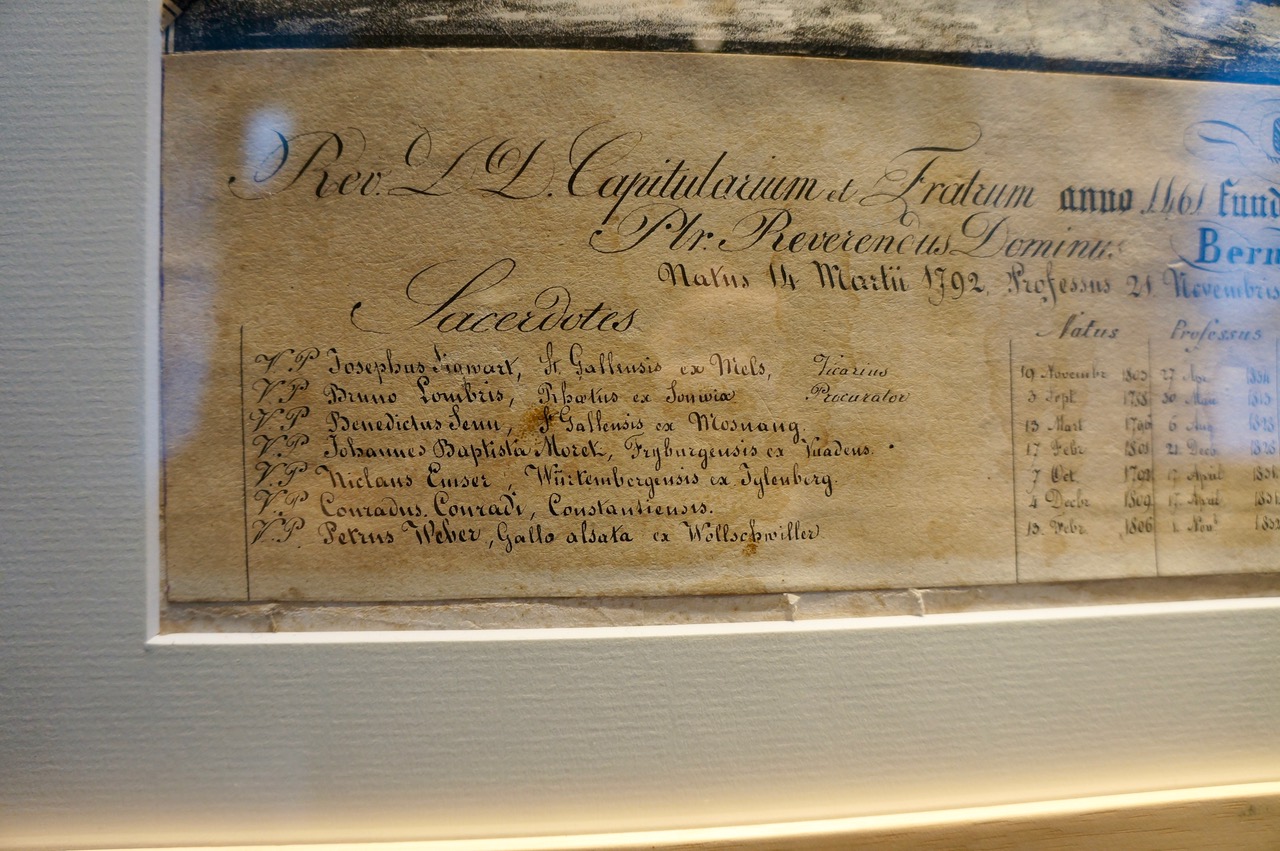 Rev. D.D. Capitularium et Fratrum anno 1461 fund
Plr. Reverendus Dominus Bern
Natus 14 Martii 1792. Professus 21 Novembris
Sacerdotes
Natus Professus
V. P. Josephus Sigwart, St. Gallensis ex Mels, Vicarius 19 Novembr 1803 27
V. P. Bruno Lombris, Rhætus ex Sonwix Procurator 3 Sept 30
V. P. Benedictus Senn, St Gallensis ex Mosnang. 13 Mart 6
V. P. Johannes Baptista Moret, Fryburgensis ex Vuadens. 17 Febr 1801 21 Dec
V. P. Niclaus Emser, Würtembergensis ex Sylenberg. 7 Oct 17 April
V. P. Conradus Conradi, Constantiensis. 4 Decbr 1809 17 April
V. P. Petrus Weber, Gallo alsata ex Wollschwiller 1806 1. Nov